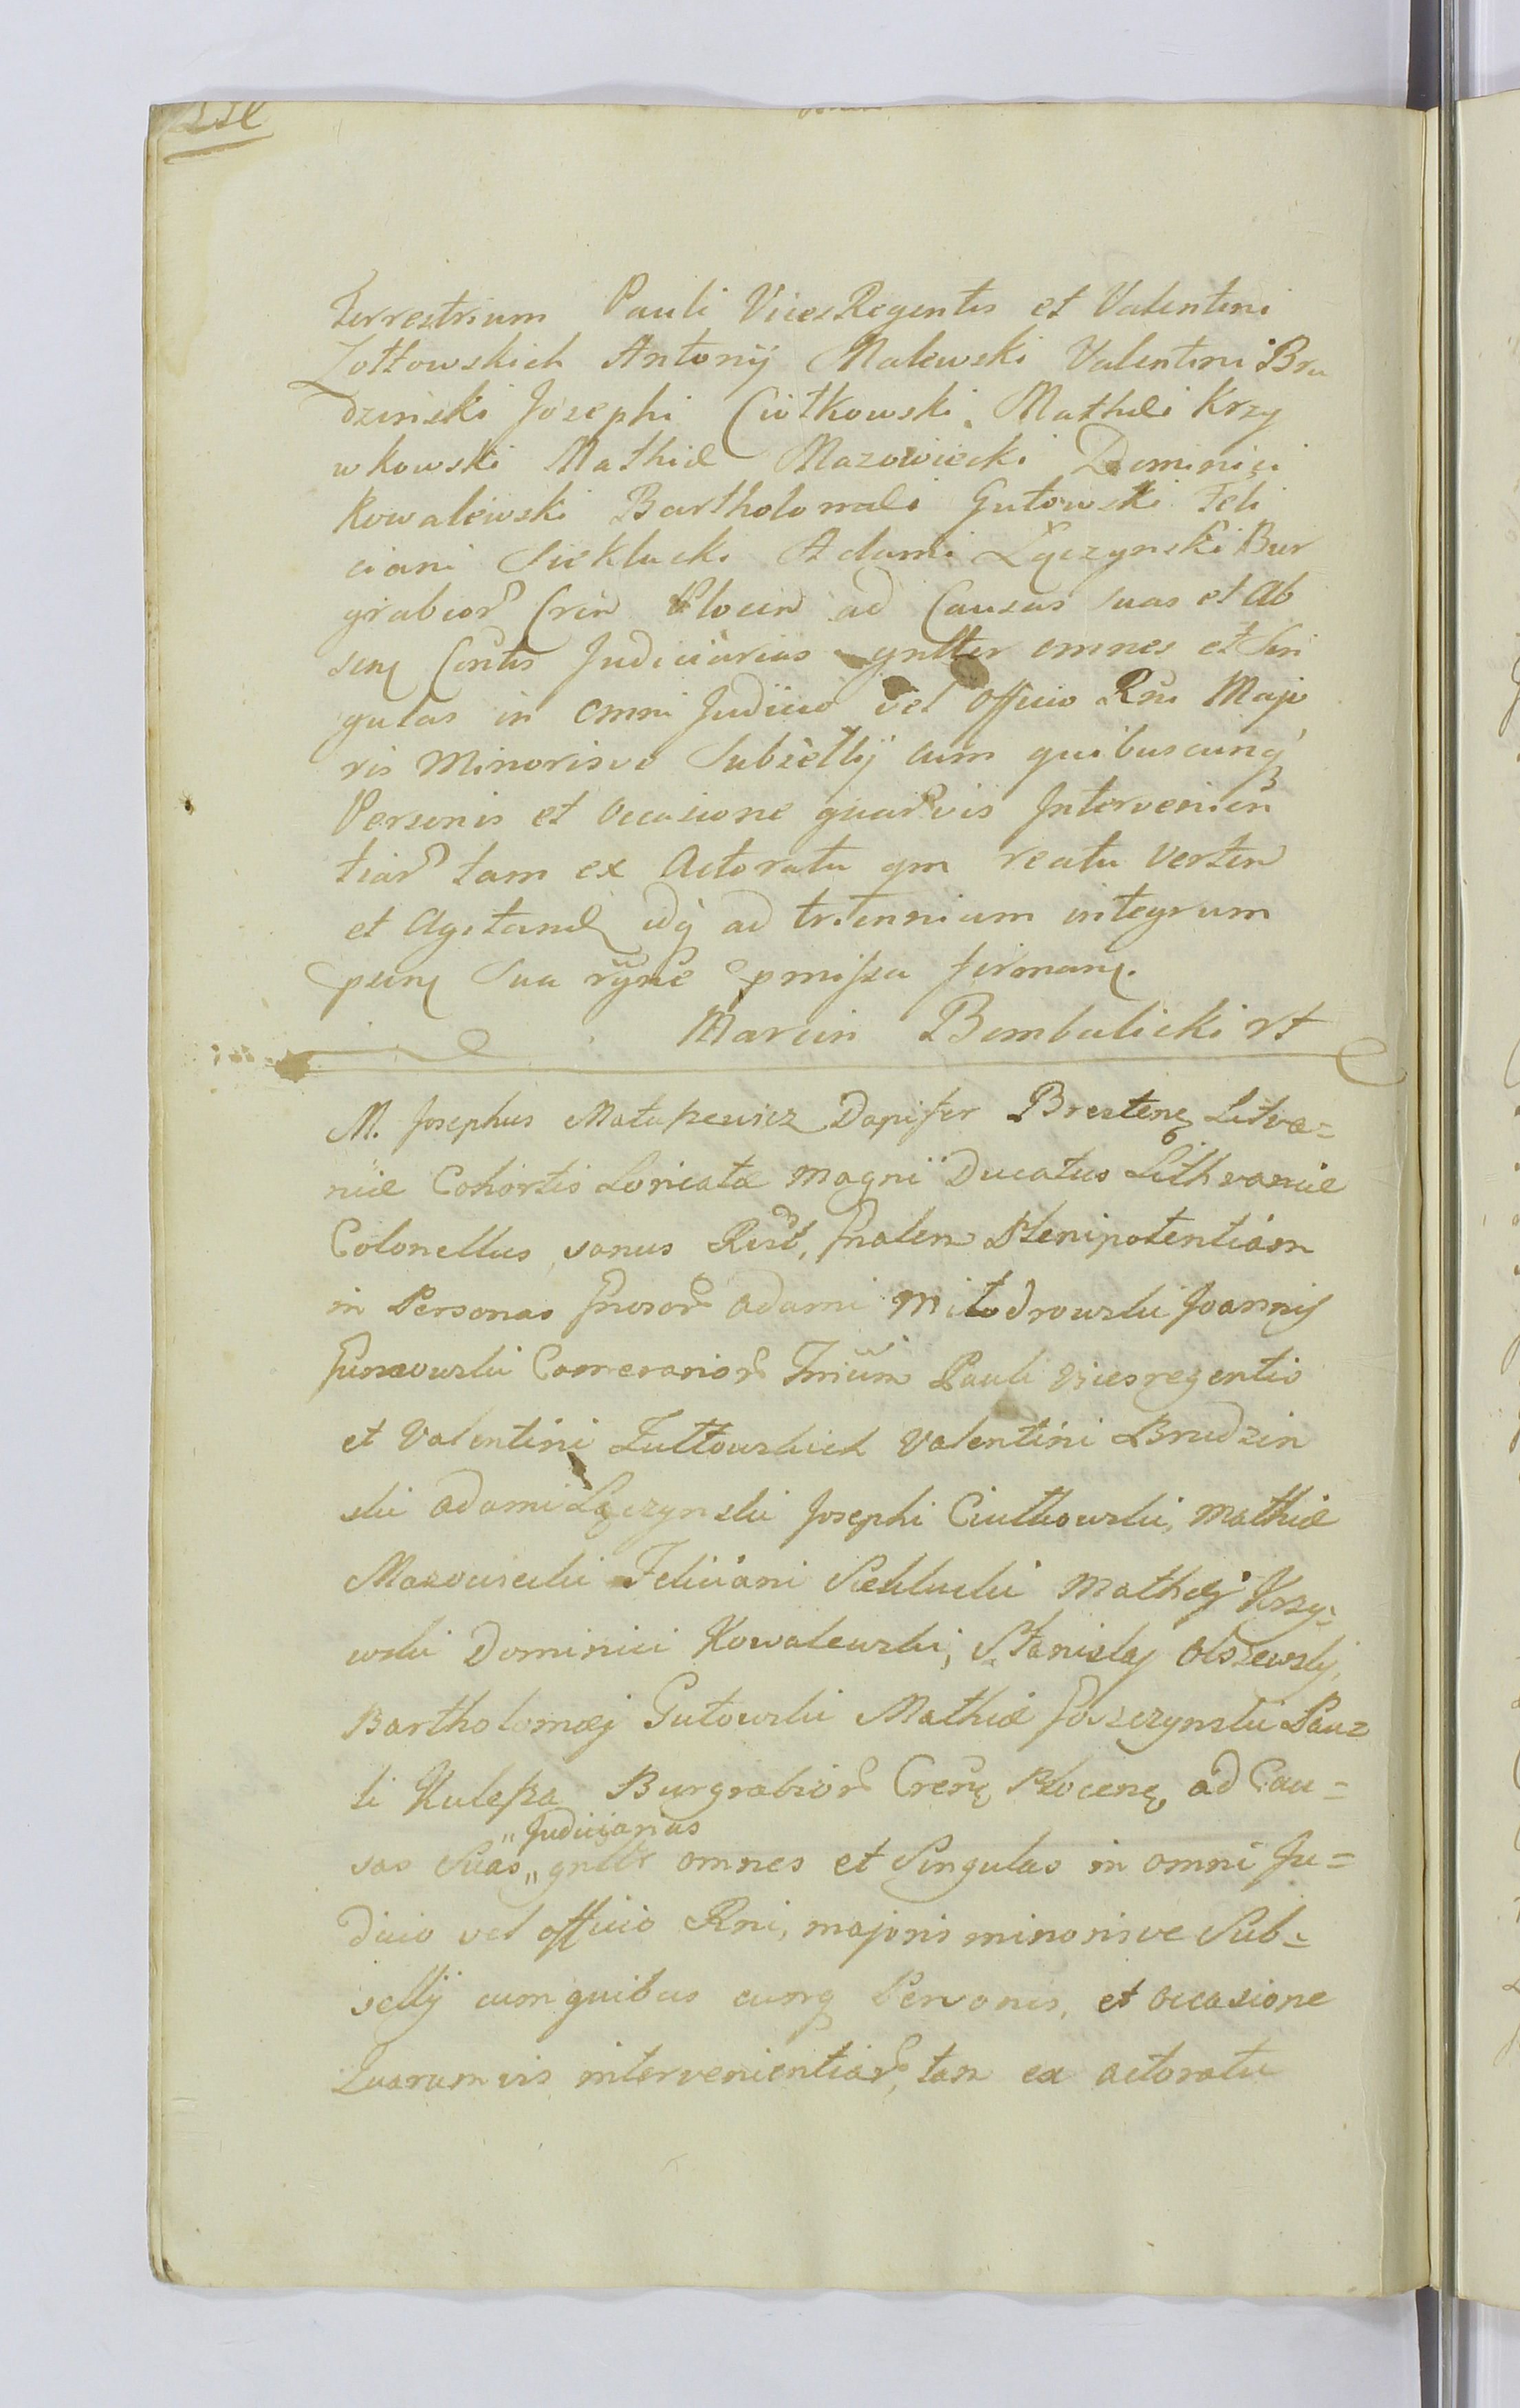 Terrestrium Pauli VicesRegentis et Valentini
Zołtowskich Antonij Malewski Valentini Bru
dzinski Josephi Ciotkowski. Mathæi Krzy
wkowski Mathiæ Mazowiecki Dominici
Kowalewski Bartholomæi Gutowski Feli
ciani Sieklucki Adami Łączynski Bur
grabior Cren Plocen ad Causas suas et Ab
senę Contis Judiciarias gnlter omnes et Sin
gulas in omni Judicio vel Officio Rni Majo
ris Minorisve Subsellij cum quibuscunq
Personis et occasione quarvis Intervenien
tiar tam ex Actoratu qm reatu Verten
et Agitand idq ad triennium integrum
psenę Sua rÿne pmissa firmanę.
Marcin Bembalicki rt
M. Josephus Matuszewicz Dapifer Brestenę Litva=
niæ Cohortis Loricatæ Magni Ducatus Lithvaniæ
Colonellus, sanus Plenipotentiam
in Personas Adami Miłodrowski Joannis
Camerarior Trrium Pauli Vicesregentis
et Valentini Zułtowskich Valentini Brudzin
ski Adami Łączynski Josephi Ciutkowski, Mathiæ
Mazowiecki Feliciani Sieklucki Mathæj Krzy=
wski Dominici Kowalewski, Stanislaj Olszewskj,
Bartholomæj Gutowski Mathiæ Pau=
li Kulesza Burgrabior Crenę Plocenę, ad Cau=
"Judiciarias
sas Suas,, gnlter omnes et Singulas in omni Ju=
dicio vel officio Rni, majoris minorisve Sub=
sellij cum quibus cunq Personis, et occasione
Quarumvis intervenientiar, tam ex actoratu